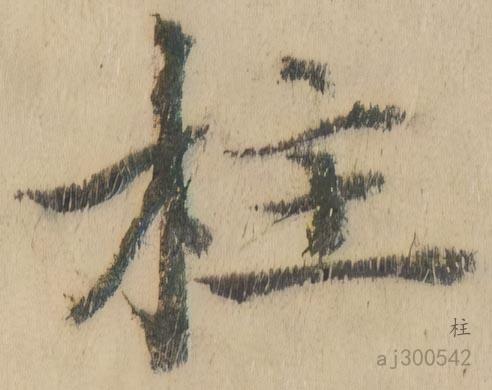 柱
柱
aj300542